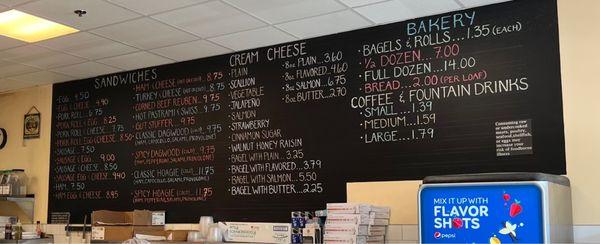 SANDWICHES
EGG 4.50
EGG & CHEESE 4.90
PORK ROLL 6.75
PORK ROLL & EGG 8.25
PORK ROLL & CHEESE 7.75
SAUSAGE 7.50
SAUSAGE & EGG 9.00
SAUSAGE & CHEESE 8.50
HAM 7.50
HAM, EGG & CHEESE 8.95
HAM & CHEESE 8.75
TURKEY & CHEESE 8.75
CORNED BEEF REUBEN 9.75
HOT PASTRAMI & SWISS 9.75
GUT STUFFER 9.75
CLASSIC DAGWOOD
SPICY DAGWOOD 9.75
CLASSIC HOAGIE 11.75
SPICY HOAGIE 11.75
CREAM CHEESE
PLAIN
SCALLION
VEGETABLE
JALAPEÑO
SALMON
STRAWBERRY
CINNAMON SUGAR
WALNUT HONEY RAISIN
BAGEL WITH PLAIN... 3.25
BAGEL WITH FLAVORED... 3.79
BAGEL WITH SALMON... 5.50
BAGEL WITH BUTTER... 2.25
8oz PLAIN... 3.60
8oz FLAVORED 4.60
8oz SALMON 6.75
8oz BUTTER... 2.70
BAKERY
BAGELS & ROLLS... 1.35 (EACH)
1/2 DOZEN... 7.00
FULL DOZEN... 14.00
BREAD... 2.00 (PER LOAF)
COFFEE & FOUNTAIN DRINKS
SMALL... 1.39
MEDIUM... 1.59
LARGE... 1.79
Consuming raw
or undercooked
meats, poultry,
seafood, shellfish,
or eggs may
increase your
risk of foodborne
illness
MIX IT UP WITH
FLAVOR
SHOTS
pepsi